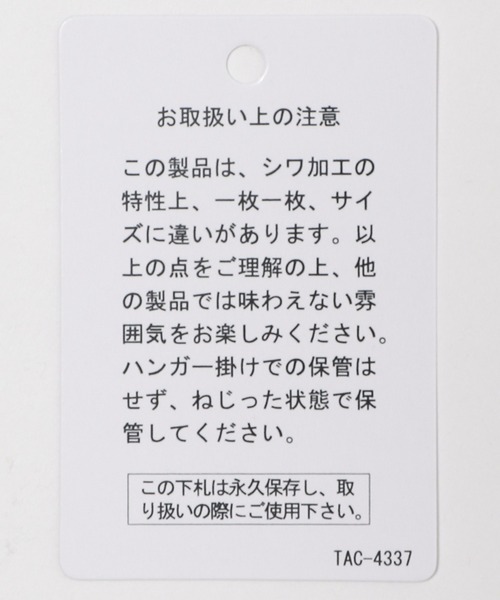 お取扱い上の注意
この製品は、シワ加工の
特性上、一枚一枚、サイ
ズに違いがあります。以
上の点をご理解の上、他
の製品では味わえない雰
囲気をお楽しみください。
ハンガー掛けでの保管は
せず、ねじった状態で保
管してください。
この下札は永久保存し、取
り扱いの際にご使用下さい。
TAC-4337